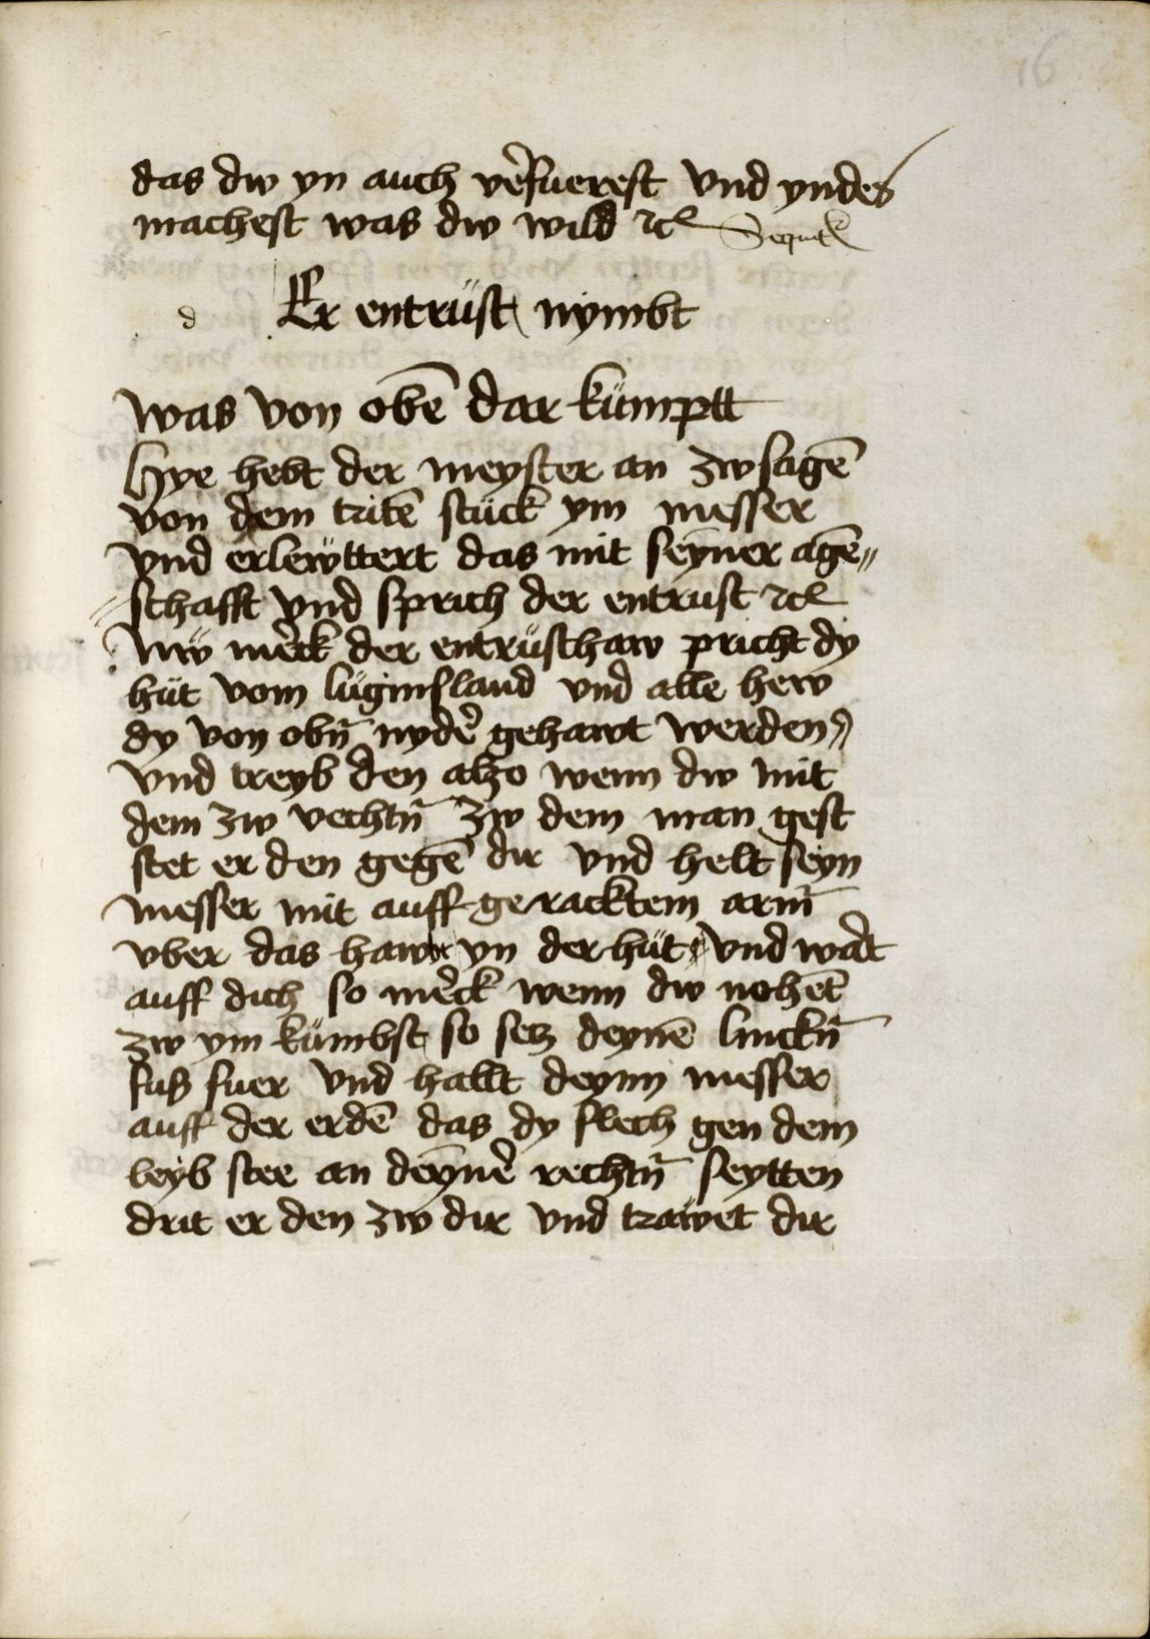 16
das dw yn auch vẽfuerest vnd yndes
machest was dw wild ⁊cͣ Sequit͛
d Er entrüst nymbt
was von obē dar kümptt
Hye hebt der meyster an zw sagē
von dem tritē stück ym messer
vnd erlewttert das mit seyner agē〃
〃schafft vnd sprich der entrust ⁊cͣ
Nw mẽck der entrüsthaw pricht dy
hüt vom luginsland vnd alle hew
dy von obn̄ nydẽ gehawt werden
vnd treyb den alzo wenn dw mit
dem zw vechtn̄ zw dem man gest
stet er den gegē dir vnd helt seyn
messer mit auff geracktem arm̄
vber das hawbt yn der hüt vnd wãt
auff dich so mẽck wenn dw nohēt
zw ym kümbst so setz deynē linckn̄
fuß fuer vnd hallt deynn messer
auff der erdē das dy flech gen dem
leyb stee an deynẽ rechtn̄ seytten
drit er den zw dir vnd trawet dir